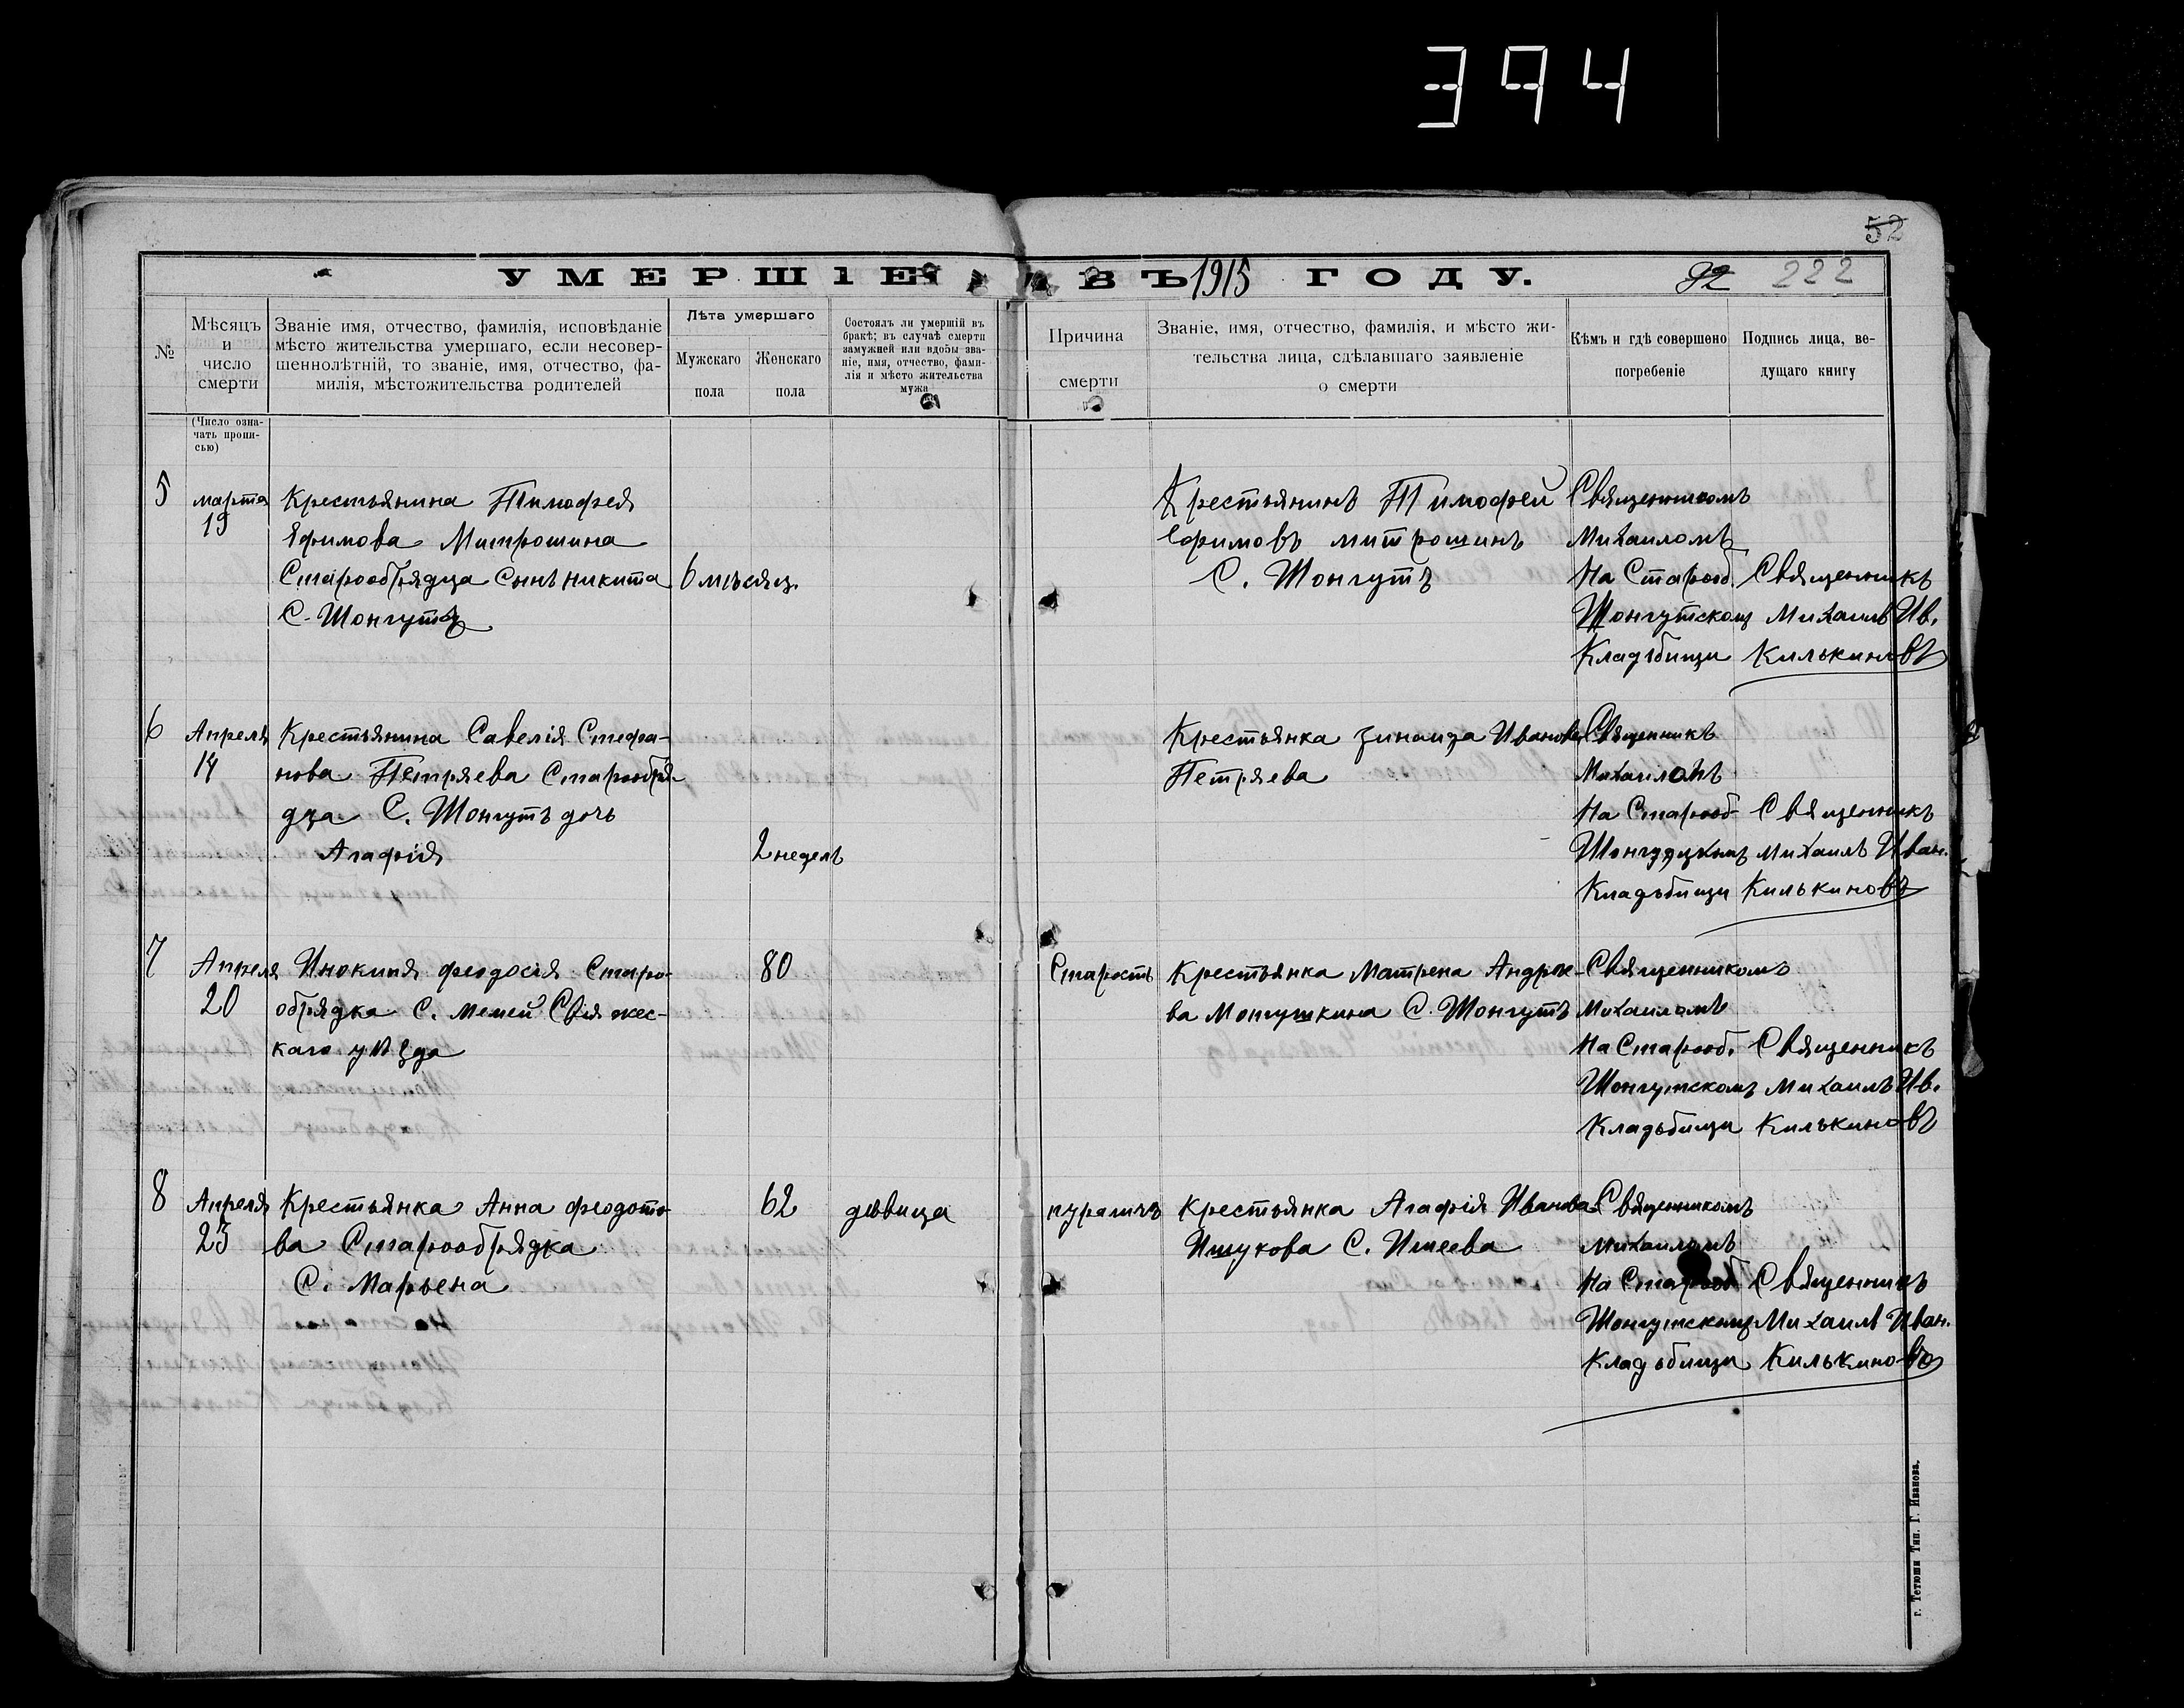 394
52
УМЕРШІЕ ВЪ 1915 ГОДУ.
92 222
№
Мѣсяцъ
и
число
смерти
(Число озна-
чать пропи-
сью)
Званіе имя, отчество, фамилія, исповѣданіе
мѣсто жительства умершаго, если несовер-
шеннолѣтній, то званіе, имя, отчество, фа-
милія, мѣстожительства родителей
Лѣта умершаго
Мужскаго
пола
Женскаго
пола
Состоялъ ли умершій въ
бракѣ; въ случаѣ смерти
замужней или вдовы зва-
ніе, имя, отчество, фами-
лія и мѣсто жительства
мужа
Причина
смерти
Званіе, имя, отчество, фамилія, и мѣсто жи-
тельства лица, сдѣлавшаго заявленіе
о смерти
Кѣмъ и гдѣ совершено
погребеніе
Подпись лица, ве-
дущаго книгу
5
марта
19
Крестьянина Тимофея
Ефимова Митрошина
Старообрядца Сынъ никита
С. Шонгутъ
6 мѣсяц.
Крестьянинъ Тимофей
Ефимовъ митрошинъ
С. Шонгутъ
Священникомъ
Михаиломъ
На Старооб.
Шонгутскомъ
Кладьбищи
Священникъ
Михаилъ Ив.
Килькиновъ
6
Апреля
14
Крестьянина Савелія Стефа-
нова Петряева Старообря-
дца С. Шонгутъ дочь
Агафія
2 неделъ
Крестьянка Зинаида Иванова
Петряева
Священникъ
Михаиломъ
На Старооб-
Шонгуцкомъ
Кладьбищи
Священникъ
Михаилъ Иван.
Килькиновъ
7
Апреля
20
Инокиня феодосія Старо-
обрядка С. Мемей Свіяжес-
каго уѣзда
80
Старость
Крестьянка Матрена Андрее-
ва Монгушкина С. Шонгутъ
Священникомъ
Михаиломъ
На Старооб.
Шонгутскомъ
Кладьбищи
Священникъ
Михаилъ Ив.
Килькиновъ
8
Апреля
23
Крестьянка Анна феодото-
ва Старообрядка
С. Марьена
62
дѣвица
Крестьянка Агафія Иванова
Ишукова С. Ишеева
Священникомъ
Михаиломъ
На Старооб
Шонгутскомъ
Кладьбищи
Священникъ
Михаилъ Иван.
Килькиновъ
г. Тетюши Тип. Г. Иванова.